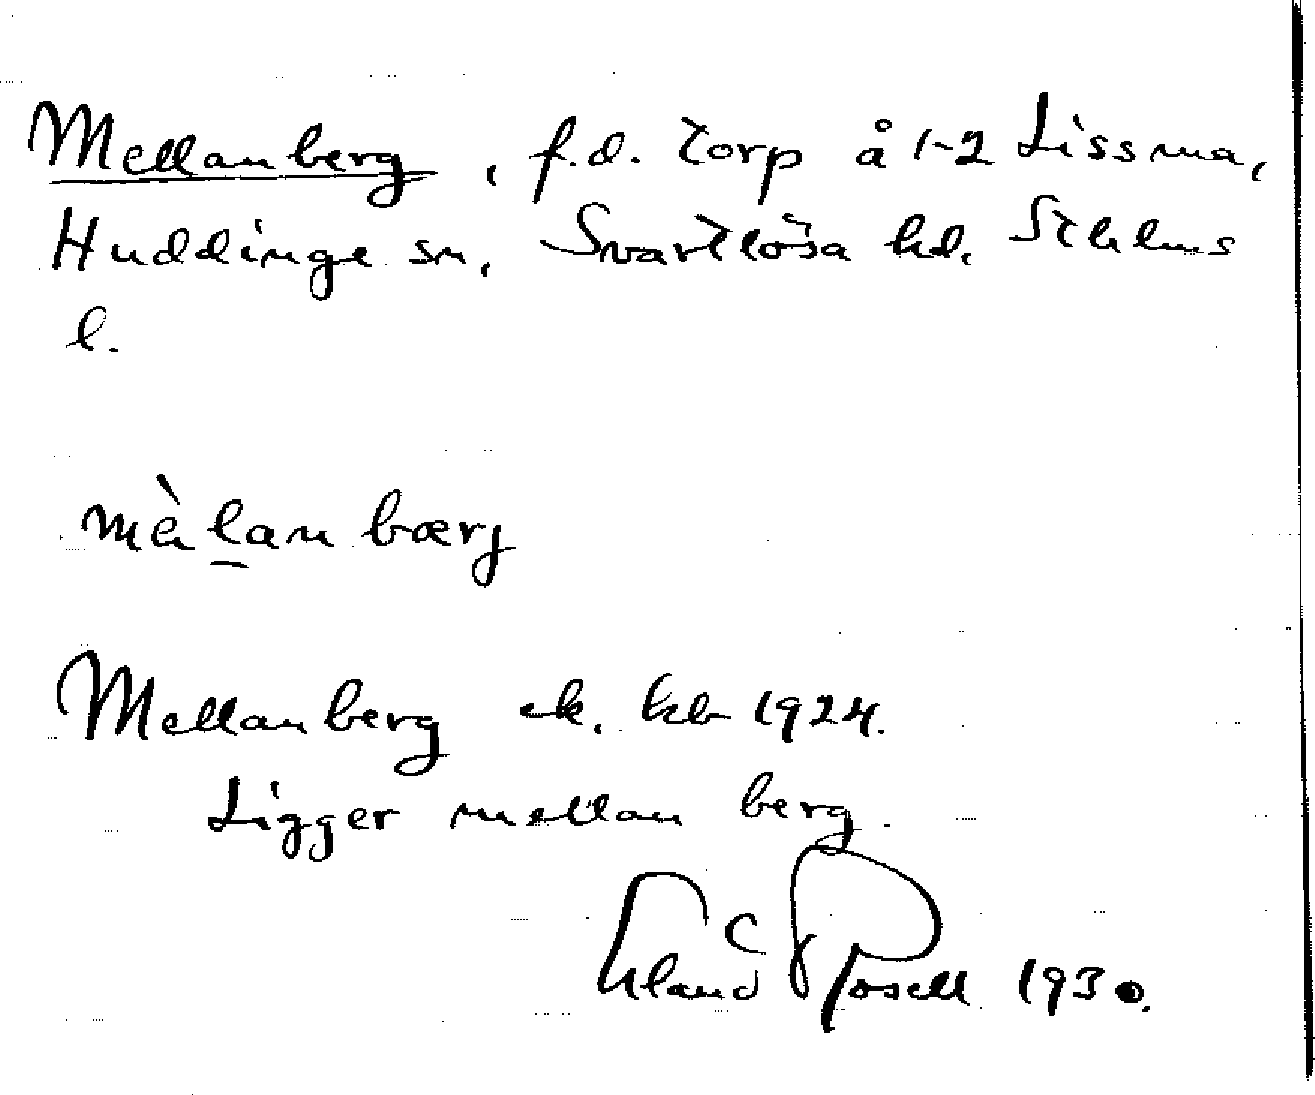 Mellanberg, f.d. torp å 1-2 Lissma,
Huddinge sn, Svartlösa hd. Sthlms
l.
mèlanbærj
Mellanberg ek. kb 1924.
Ligger mellan berg.
Erland Rosell 1930.